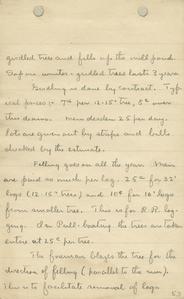 girdled trees and fills up the mill pond.
Sap in winter-girdled trees lasts 3 years
Girdling is done by contract. Typ
ical prices: 7¢ per 12-15" tree, 5¢ over
this desire. Men desire 25 per day.
lots are given out by strips and
checked by the estimate.
Felling goes on all the year. Men
are paid so much per log. 25¢ for 32'
logs (12-15" trees) and 10¢ for 16' logs
from smaller tree. This is for R.R. log-
ging. In Pull-boating the trees are taken
entire at 25¢ per tree.
The foreman blazes the tree for the
direction of felling (parallel to the run).
This is to facilitate removal of logs
53